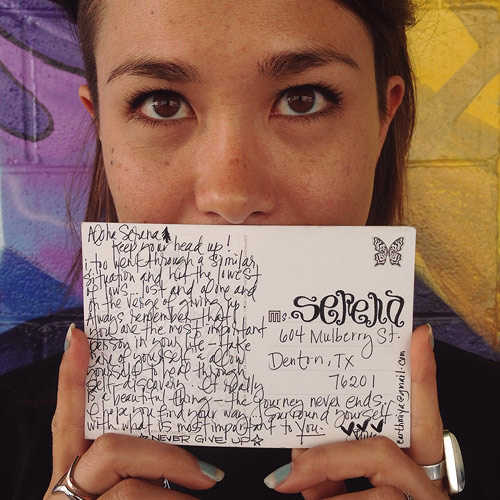 Aloha Serena
Keep your head up!
i too went through a similar
situation and hit the lowest
of lows... lost and alone and
on the verge of giving up
Always remember that
you are the most important
person in your life - take
care of yourself & allow
yourself to heal through
self-discovery. It really
is a beautiful thing - the journey never ends.
I hope you find your way & surround yourself
with what is most important to you.
☆NEVER GIVE UP☆
Ms. Serena
604 Mulberry St.
Denton, TX
76201